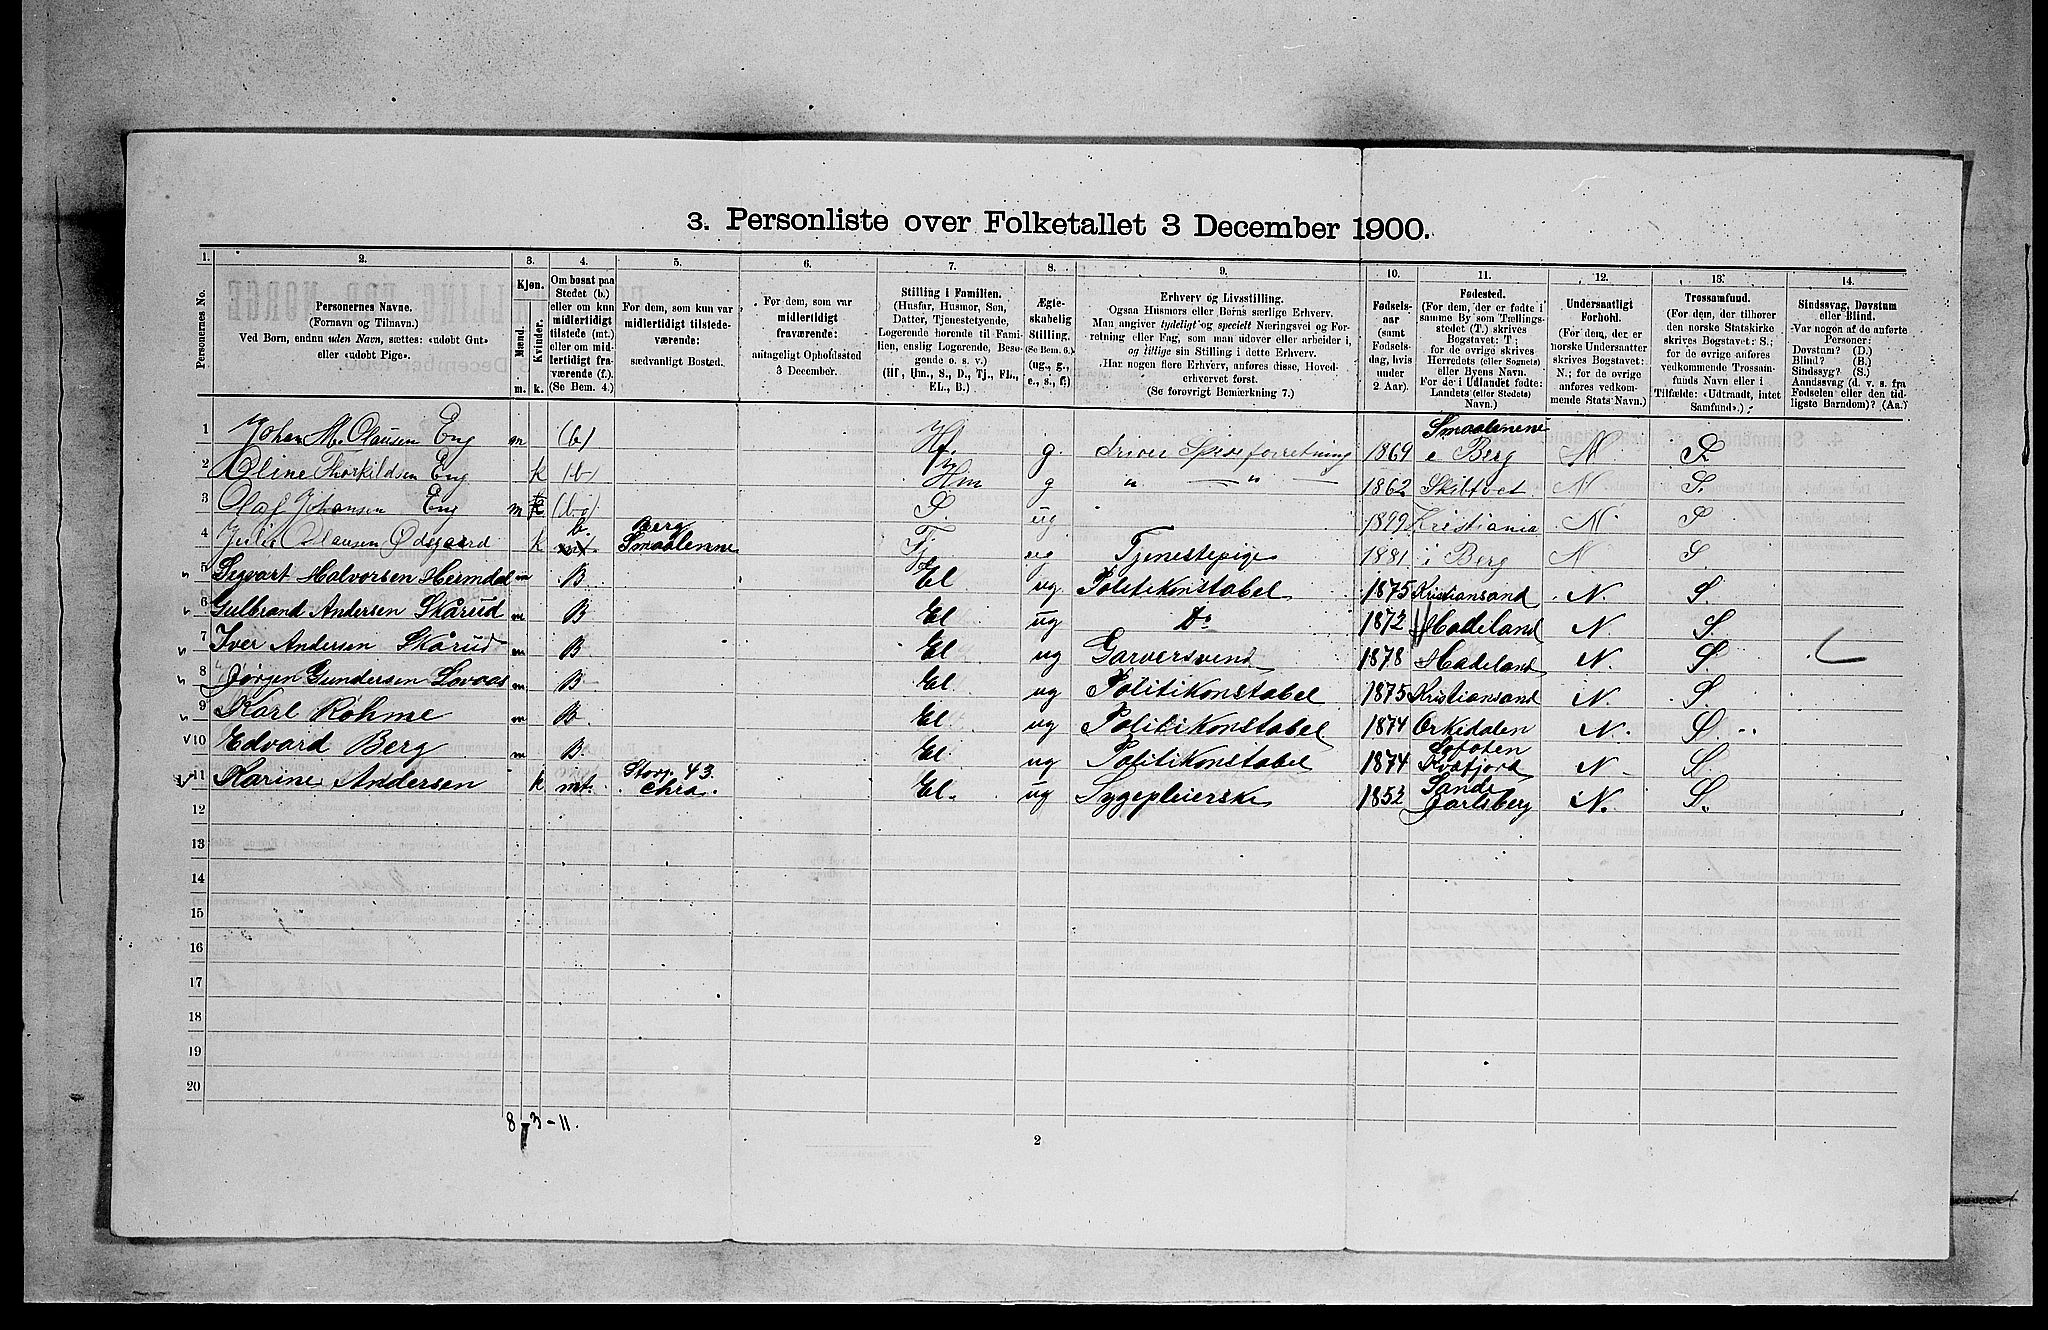 3. Personliste over Folketallet 3 December 1900.
1. 2. 3. 4. 5. 6. 7. 8. 9. 10. 11. 12. 13. 14.
Personernes No.
Personernes Navne.
(Fornavn og Tilnavn.)
Ved Børn, endnu uden Navn, sættes: «udøbt Gut»
eller «udøbt Pige».
Kjøn.
Mænd. Kvinder.
m. k.
Om bosat paa
Stedet (b.)
eller om kun
midlertidigt
tilstede (mt.)
eller om mid-
lertidigt fra-
værende (f.).
(Se Bem. 4.)
For dem, som kun var
midlertidigt tilstede-
værende:
sædvanligt Bosted.
For dem, som var
midlertidigt
fraværende:
antageligt Opholdssted
3 December.
Stilling i Familien.
(Husfar, Husmor, Søn,
Datter, Tjenestetyende,
Logerende hørende til Fami-
lien, enslig Logerende, Besø-
gende o. s. v.)
(Hf., Hm., S., D., Tj., FL.,
EL., B.)
Ægte-
skabelig
Stilling.
(Se Bem. 6.)
(ug., g.,
e., s., f.)
Erhverv og Livsstilling.
Ogsaa Husmors eller Børns særlige Erhverv.
Man angiver tydeligt og specielt Næringsvei og For-
retning eller Fag, som man udøver eller arbeider i,
og tillige sin Stilling i dette Erhverv.
Har nogen flere Erhverv, anføres disse, Hoved-
erhvervet først.
(Se forøvrigt Bemærkning 7.)
Fødsels-
aar
(samt
Fødsels-
dag, hvis
under
2 Aar).
Fødested.
(For dem, der er fødte i
samme By som Tællings-
stedet (T.) skrives
Bogstavet: T;
for de øvrige skrives
Herredets (eller Sognets)
eller Byens Navn.
For de i Udlandet fødte:
Landets (eller Stedets)
Navn.)
Undersaatligt
Forhold.
(For dem, der er
norske Undersaatter
skrives Bogstavet:
N.; for de øvrige
anføres vedkom-
mende Stats Navn.)
Trossamfund.
(For dem, der tilhører
den norske Statskirke
skrives Bogstavet: S.;
for de øvrige anføres
vedkommende Trossam-
funds Navn eller i
Tilfælde: «Udtraadt, intet
Samfund».)
Sindssvag, Døvstum
eller Blind.
Var nogen af de anførte
Personer:
Døvstum? (D.)
Blind? (B.)
Sindssyg? (S.)
Aandssvag (d. v. s. fra
Fødselen eller den tid-
ligste Barndom)? (Aa.)
1 Johan M. Olausen Eng m (b) Hf. g. driver Spiseforretning 1869 Smaalenene i Berg N. S.
2 Oline Thorkildsen Eng k (b) Hm g " — " — 1862 Skibtvet N S.
3 Olaf Johansen Eng m (b) S. ug 1899 Kristiania N. S
4 Julie Olausen Ødegaard k b. mt. Berg Smaalenne Tj ug Tjenestepige 1881 i Berg N S.
5 Sigvart Halvorsen Hermdal m B El ug Politikonstabel 1875 Kristiansand N. S.
6 Gulbrand Andersen Skårud m B El ug Do 1872 Hadeland N. S.
7 Iver Andersen Skårud m B El ug Garversvend 1878 Hadeland N. S
8 Jørgen Gundersen Lovaas m B El. ug Politikonstabel 1875 Kristiansand N. S.
9 Karl Röhme m B. El ug Politikonstabel 1874 Orkidalen N. S
10 Edvard Berg m B. El ug Politikonstabel 1874 Lofoten Kvæfjord N S
11 Karine Andersen k mt. Storg. 43. Chra. El. ug Sygepleierske 1852 Sande Jarlsberg N. S.
12
13
14
15
16
17
18
19
20
8 - 3 - 11.
2